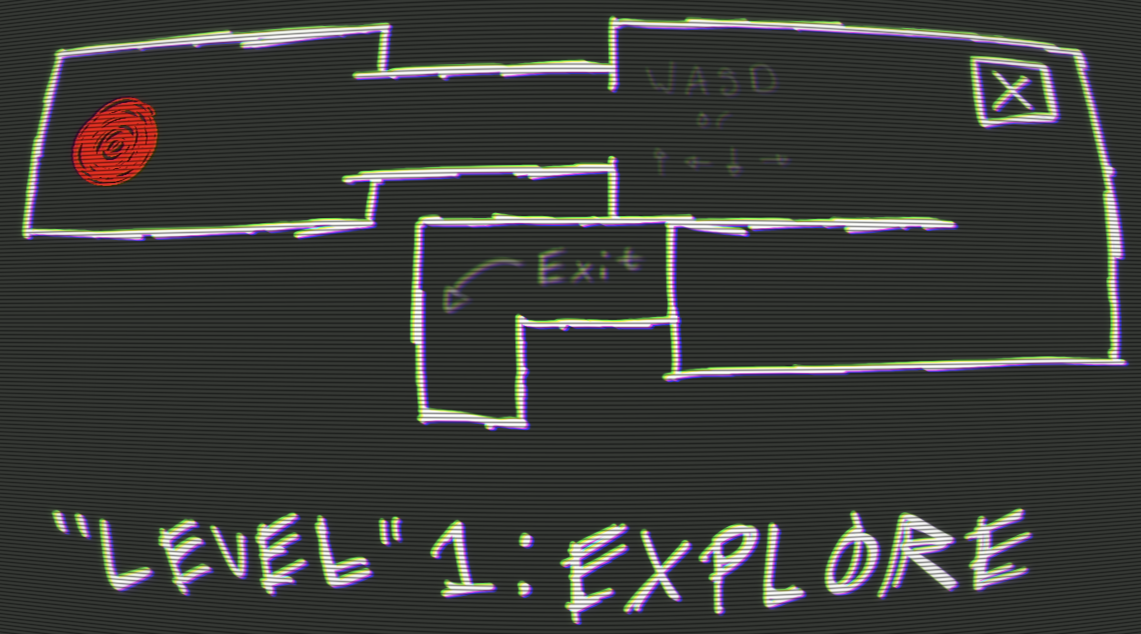 WASD
or
↑ ← ↓ →
X
Exit
"LEVEL" 1: EXPLØRE